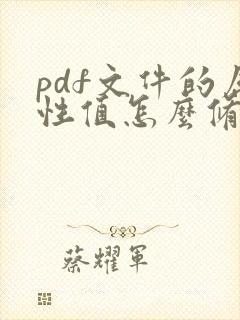 pdf文件的
性值怎麼
蔡耀軍